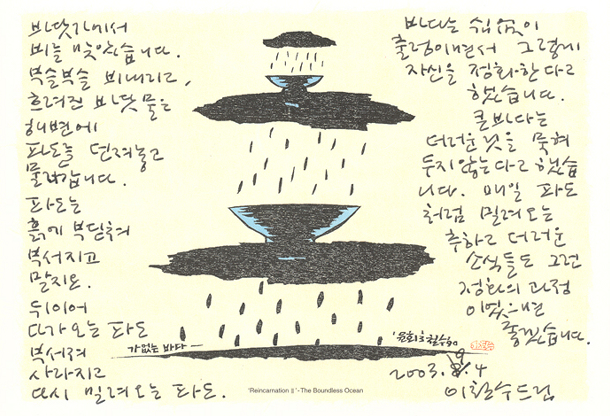 바닷가에서
비를 맞았습니다.
부슬부슬 비내리고,
흐려진 바닷물은
해변에
파도를 던져놓고
물러갑니다.
파도는
흙에 부딪혀
부서지고
말지요.
뒤이어
다가오는 파도
부서져
사라지고
다시 밀려오는 파도.
바다는 쉼없이
출렁이면서 그렇게
자신을 정화한다고
했습니다.
큰바다는
더러운것을 묵혀
두지않는다고 했습
니다. 매일 파도
처럼 밀려오는
추하고 더러운
소식들도 그런
정화의 과정
이었으면
좋겠습니다.
가없는 바다
'윤회'
2003. 9. 4
이철수드림
'Reincarnation II'- The Boundless Ocean